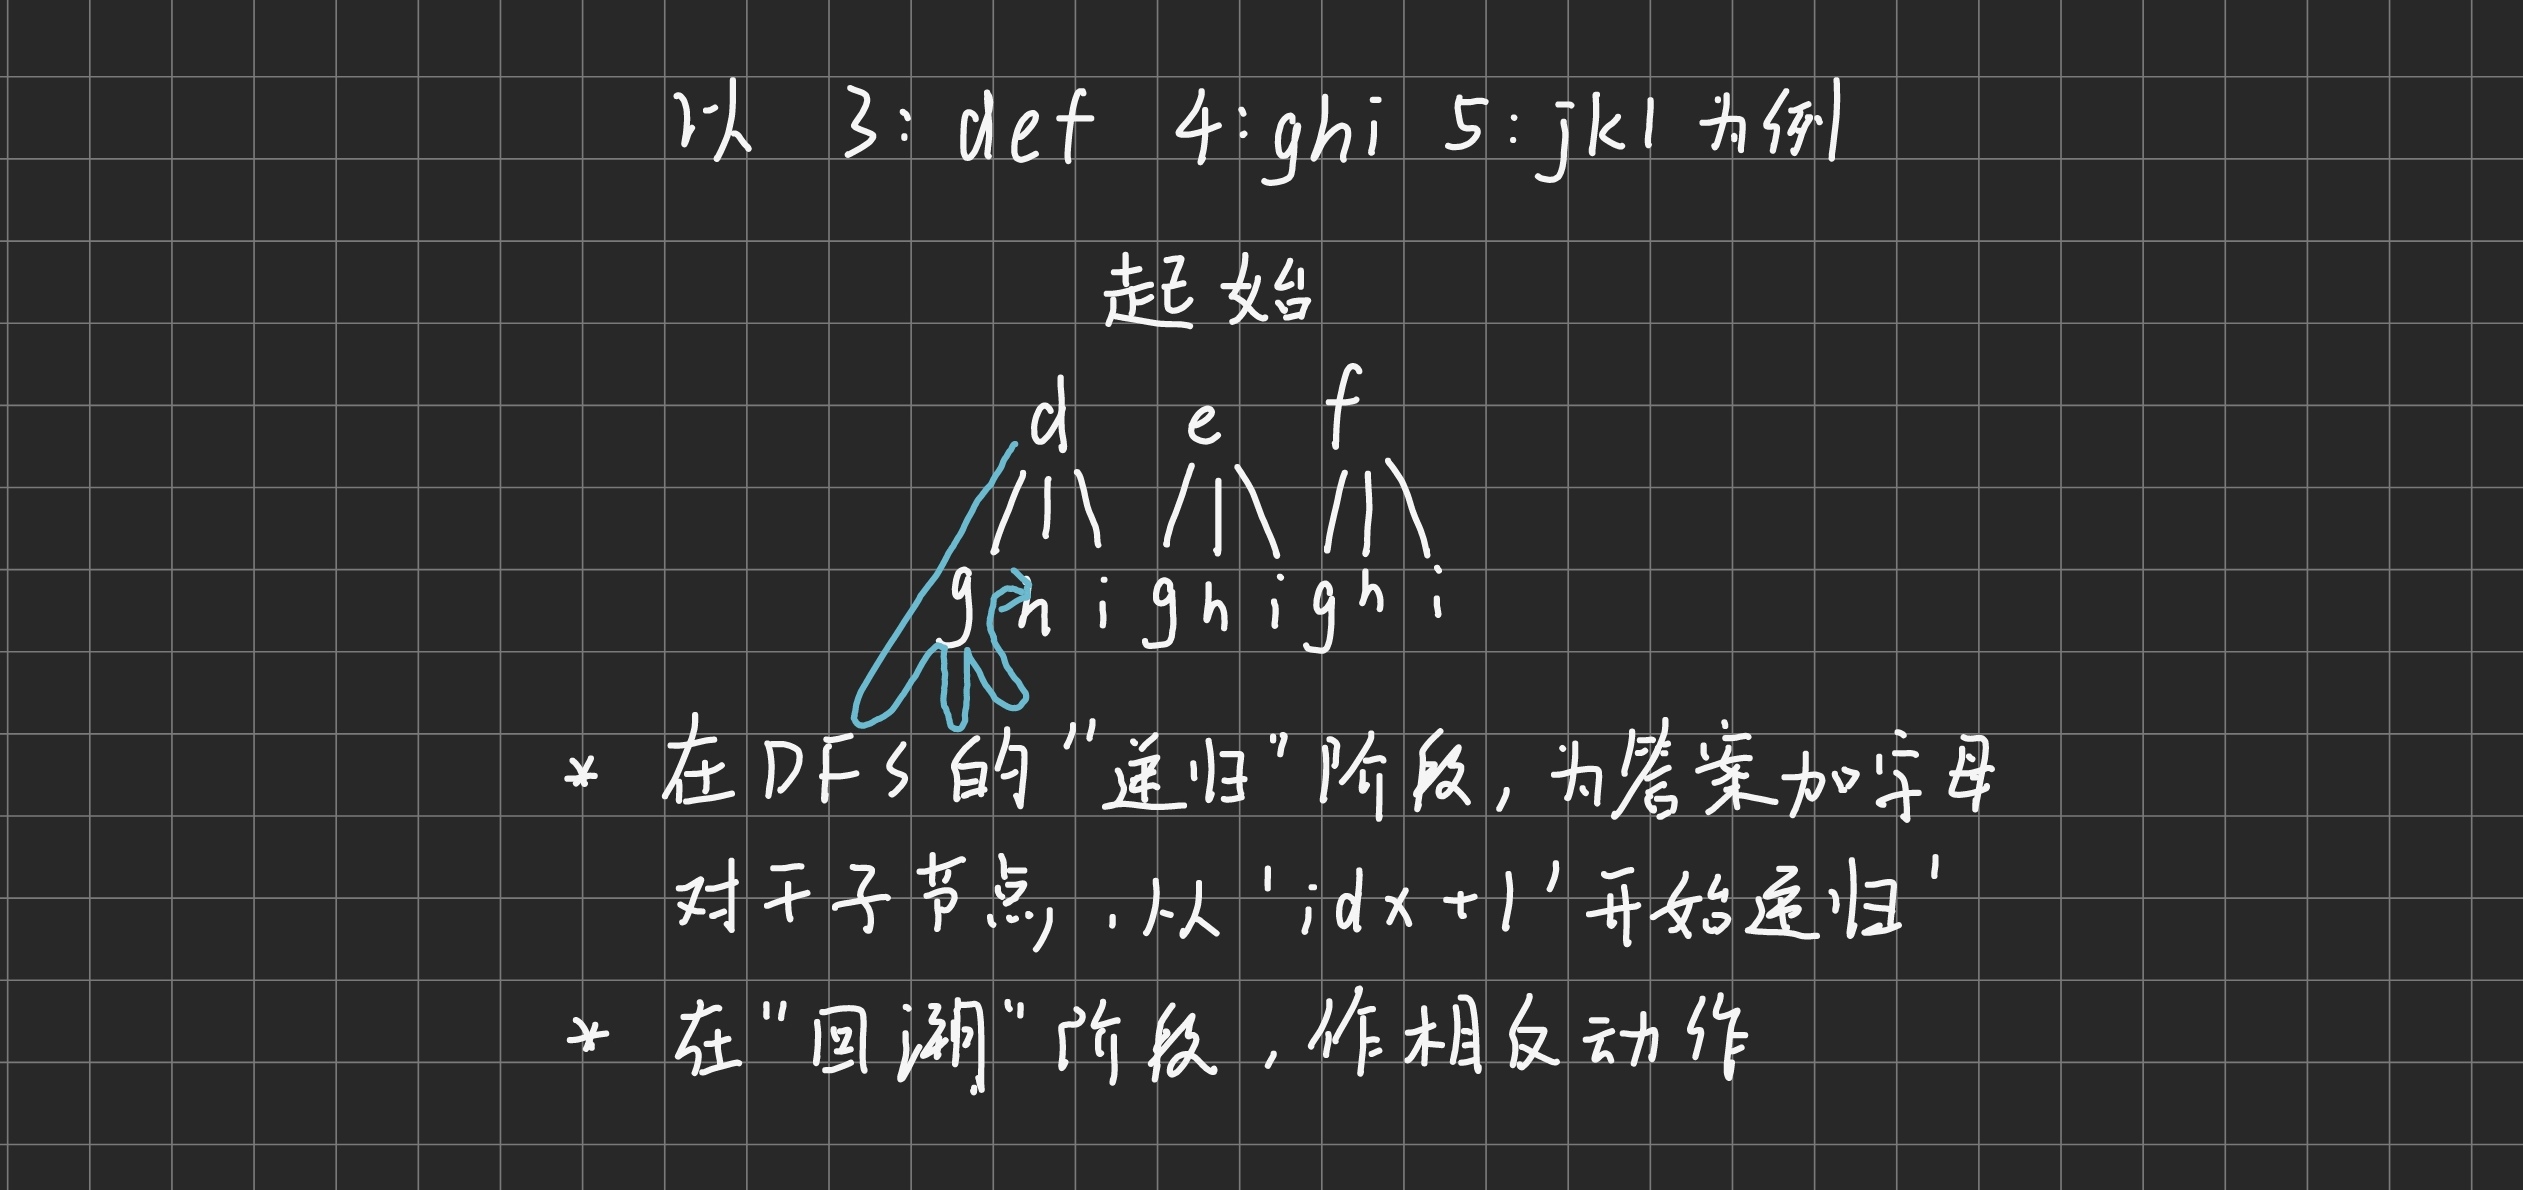 以 3: def 4: ghi 5: jkl 为例
起始
d e f
g h i g h i g h i
* 在DFS的"递归"阶段,为答案加字母
对于子节点,从'idx+1'开始递归'
* 在"回溯"阶段,作相反动作